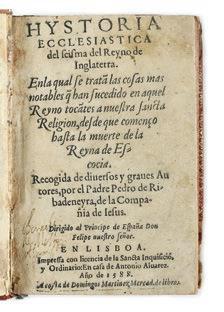 HYSTORIA
ECCLESIASTICA
del scisma del Reyno de
Inglaterra.
En la qual se tratã las cosas mas
notables q̃ han sucedido en aquel
Reyno tocãtes a nuestra sancta
Religion, desde que començo
hasta la muerte de la
Reyna de Es-
cocia.
Recogida de diuersos y graues Au
tores, por el Padre Pedro de Ri-
badeneyra, de la Compa-
ñia de Iesus.
Dirigido al Principe de España Don
Felipe nuestro señor.
EN LISBOA.
Impressa con licencia de la Sancta Inquisiciõ,
y Ordinario: En casa de Antonio Aluarez.
Año de 1588.
A costa de Domingos Martinez Mercad. de libros.